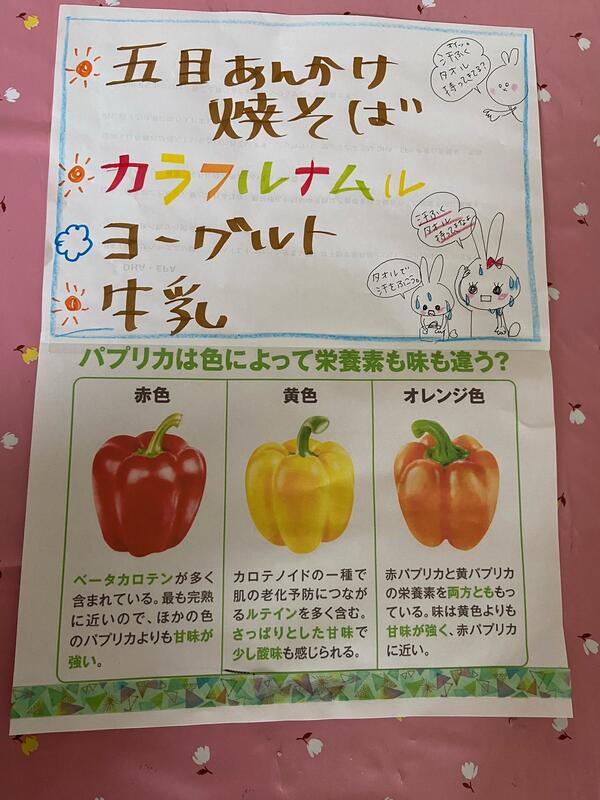 五目あんかけ
焼そば
カラフルナムル
ヨーグルト
牛乳
汗ふく
タオル
持ってきてる?
汗ふく
タオル
持ってきなよ
タオルで
汗をふこう。
DHA・EPA
パプリカは色によって栄養素も味も違う?
赤色
ベータカロテンが多く
含まれている。最も完熟
に近いので、ほかの色
のパプリカよりも甘味が
強い。
黄色
カロテノイドの一種で
肌の老化予防につなが
るルテインを多く含む。
さっぱりとした甘味で
少し酸味も感じられる。
オレンジ色
赤パプリカと黄パプリカ
の栄養素を両方とももっ
ている。味は黄色よりも
甘味が強く、赤パプリカ
に近い。